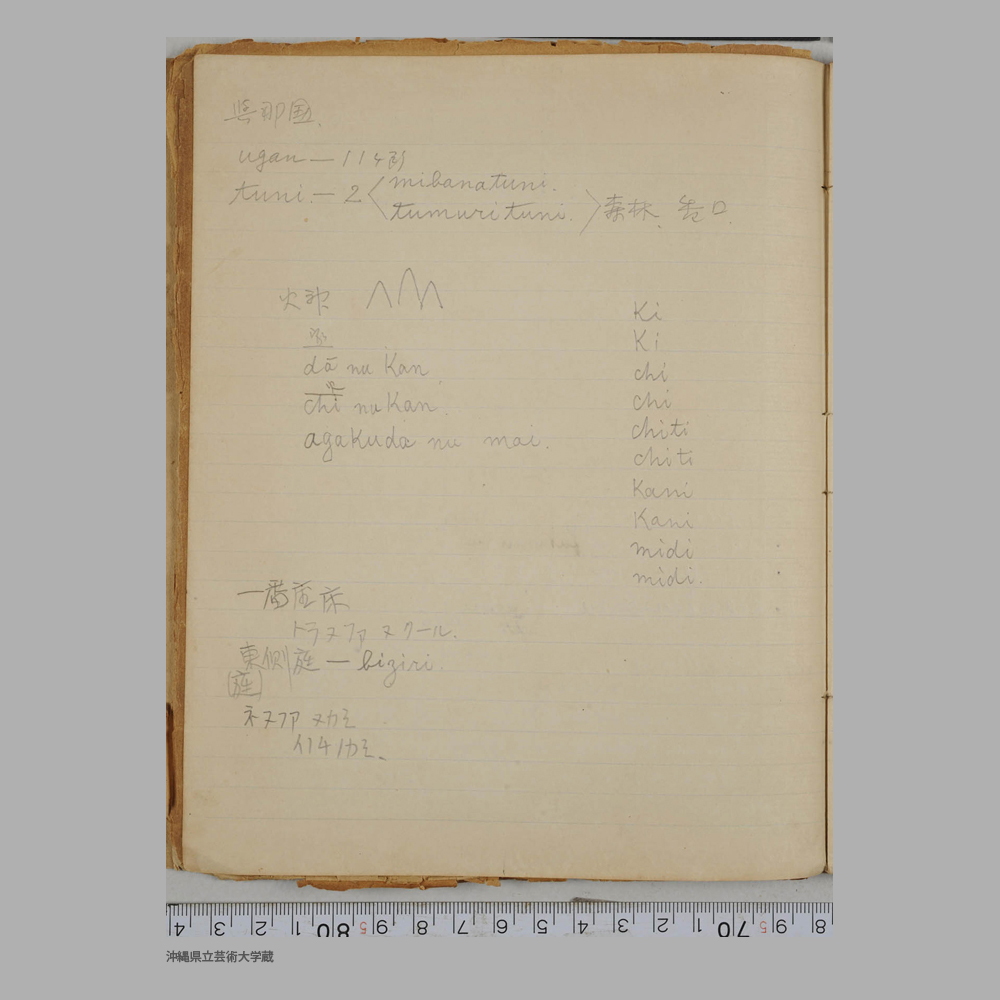 與那国.
ugan — 11ヶ所
tuni. — 2 < mibanatuni.
tumurituni. > 森林、香口.
火神
家
dā nu Kan.
chi nu Kan.
agaKuda nu mai.
Ki
Ki
chi
chi
chiti
chiti
Kani
Kani
midi
midi.
一番座床
トラヌファ ヌクール.
東側庭 — biziri.
庭
ネヌファ ヌカミ
イハチノカミ、
4 3 2 1 80 9 8 7 6 5 4 3 2 1 70 9 8
沖縄県立芸術大学蔵